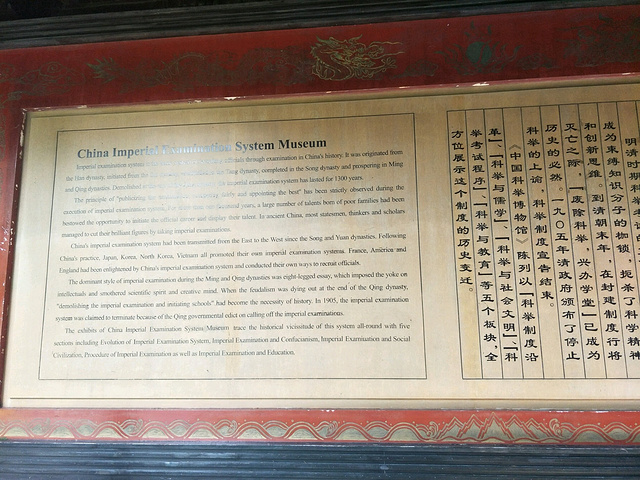 China Imperial Examination System Museum
Imperial examination system officials through examination in China's history. It was originated from
the Han dynasty, initiated from the Tang dynasty, completed in the Song dynasty and prospering in Ming
and Qing dynasties. Demolished imperial examination system has lasted for 1300 years.
The principle of "publicizing and appointing the best" has been strictly observed during the
execution of imperial examination years, a large number of talents born of poor families had been
bestowed the opportunity to initiate the official career and display their talent. In ancient China, most statesmen, thinkers and scholars
managed to cut their brilliant figures by taking imperial examinations.
China's imperial examination system had been transmitted from the East to the West since the Song and Yuan dynasties. Following
China's practice, Japan, Korea, North Korea, Vietnam all promoted their own imperial examination systems. France, America and
England had been enlightened by China's imperial examination system and conducted their own ways to recruit officials.
The dominant style of imperial examination during the Ming and Qing dynasties was eight-legged essay, which imposed the yoke on
intellectuals and smothered scientific spirit and creative mind. When the feudalism was dying out at the end of the Qing dynasty,
"demolishing the imperial examination and initiating schools" had become the necessity of history. In 1905, the imperial examination
system was claimed to terminate because of the Qing governmental edict on calling off the imperial examinations.
The exhibits of China Imperial Examination System Museum trace the historical vicissitude of this system all-round with five
sections including Evolution of Imperial Examination System, Imperial Examination and Confucianism, Imperial Examination and Social
Civilization, Procedure of Imperial Examination as well as Imperial Examination and Education.
明清时期
成为束缚知识分子的枷锁，扼杀了科学精神
和创新思维。到清朝末年，在封建制度行将
灭亡之际，“废除科举，兴办学堂”已成为
历史的必然。一九〇五年清政府颁布了停止
科举的上谕，科举制度宣告结束。
《中国科举博物馆》陈列以“科举制度沿
革”、“科举与儒学”、“科举与社会文明”、“科
举考试程序”、“科举与教育”等五个板块，全
方位展示这个制度的历史变迁。